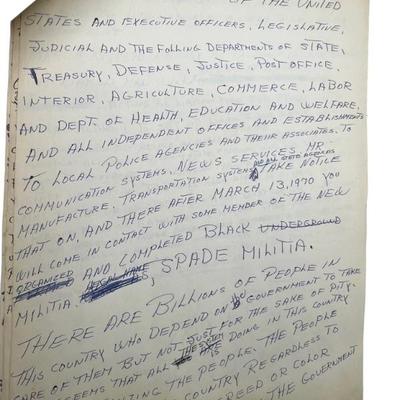 OF THE UNITED
STATES AND EXECUTIVE OFFICERS, LEGISLATIVE,
JUDICIAL AND THE FOLLING DEPARTMENTS OF STATE,
TREASURY, DEFENSE, JUSTICE, POST OFFICE,
INTERIOR, AGRICULTURE, COMMERCE, LABOR
AND DEPT. OF HEALTH, EDUCATION AND WELFARE,
AND ALL INDEPENDENT OFFICES AND ESTABLISHMENTS
TO LOCAL POLICE AGENCIES AND THEIR ASSOCIATES. TO
COMMUNICATION SYSTEMS, NEWS SERVICES, MR.
AND ALL STATE AGENCIES
MANUFACTURE. TRANSPORTATION SYSTEMS TAKE NOTICE
THAT ON, AND THERE AFTER MARCH 13, 1970 YOU
WILL COME IN CONTACT WITH SOME MEMBER OF THE NEW
ORGANIZED AND COMPLETED BLACK UNDERGROUND
MILITIA, SPADE MILITIA.
THERE ARE BILLIONS OF PEOPLE IN
THIS COUNTRY WHO DEPEND ON GOVERNMENT TO TAKE
CARE OF THEM BUT NOT JUST FOR THE SAKE OF PITY.
SEEMS THAT ALL THE SYSTEM IS DOING IN THIS COUNTRY
THE PEOPLE. THE PEOPLE
COUNTRY REGARDLESS TO
CREED OR COLOR
THE GOVERNMENT